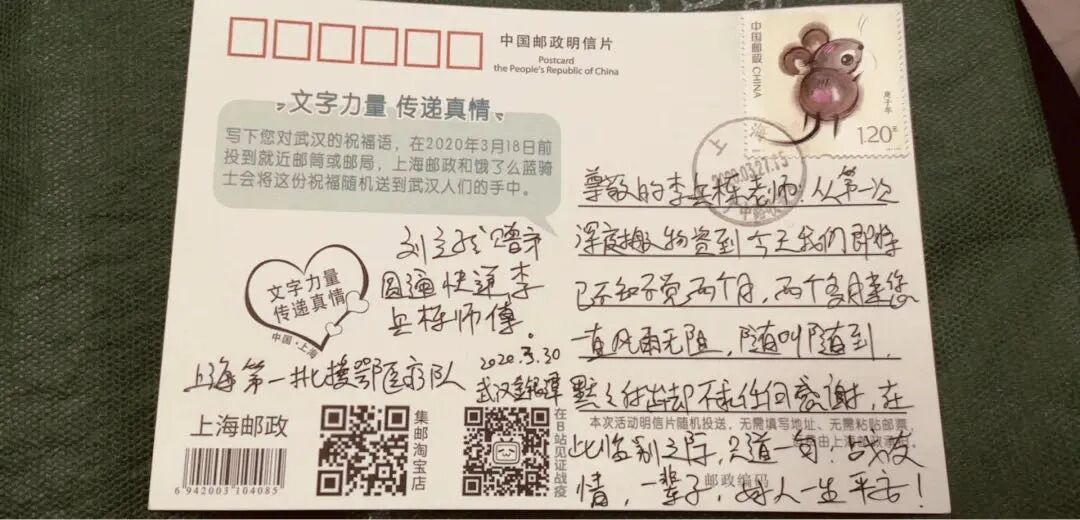 中国邮政明信片
Postcard
the People's Republic of China
中国邮政 CHINA
庚子年
1.20元
文字力量 传递真情
写下您对武汉的祝福语，在2020年3月18日前
投到就近邮筒或邮局，上海邮政和饿了么蓝骑
士会将这份祝福随机送到武汉人们的手中。
上海
2020.03.27.15
尊敬的李兵栋老师：从第一次
深夜搬物资到今天我们即将
已不知不觉两个月，两个多月来您
一直风雨无阻，随叫随到，
默々付出却不求任何感谢，在
此临别之际，只道一句：战友
情，一辈子，好人一生平安！
赠予
圆通快递李
兵栋师傅。
文字力量
传递真情
中国·上海
上海第一批援鄂医疗队
2020.3.30
武汉金银潭
上海邮政
6 942003 104085
集邮淘宝店
在B站见证战疫
本次活动明信片随机投送，无需填写地址、无需粘贴邮票
由上海邮政
邮政编码